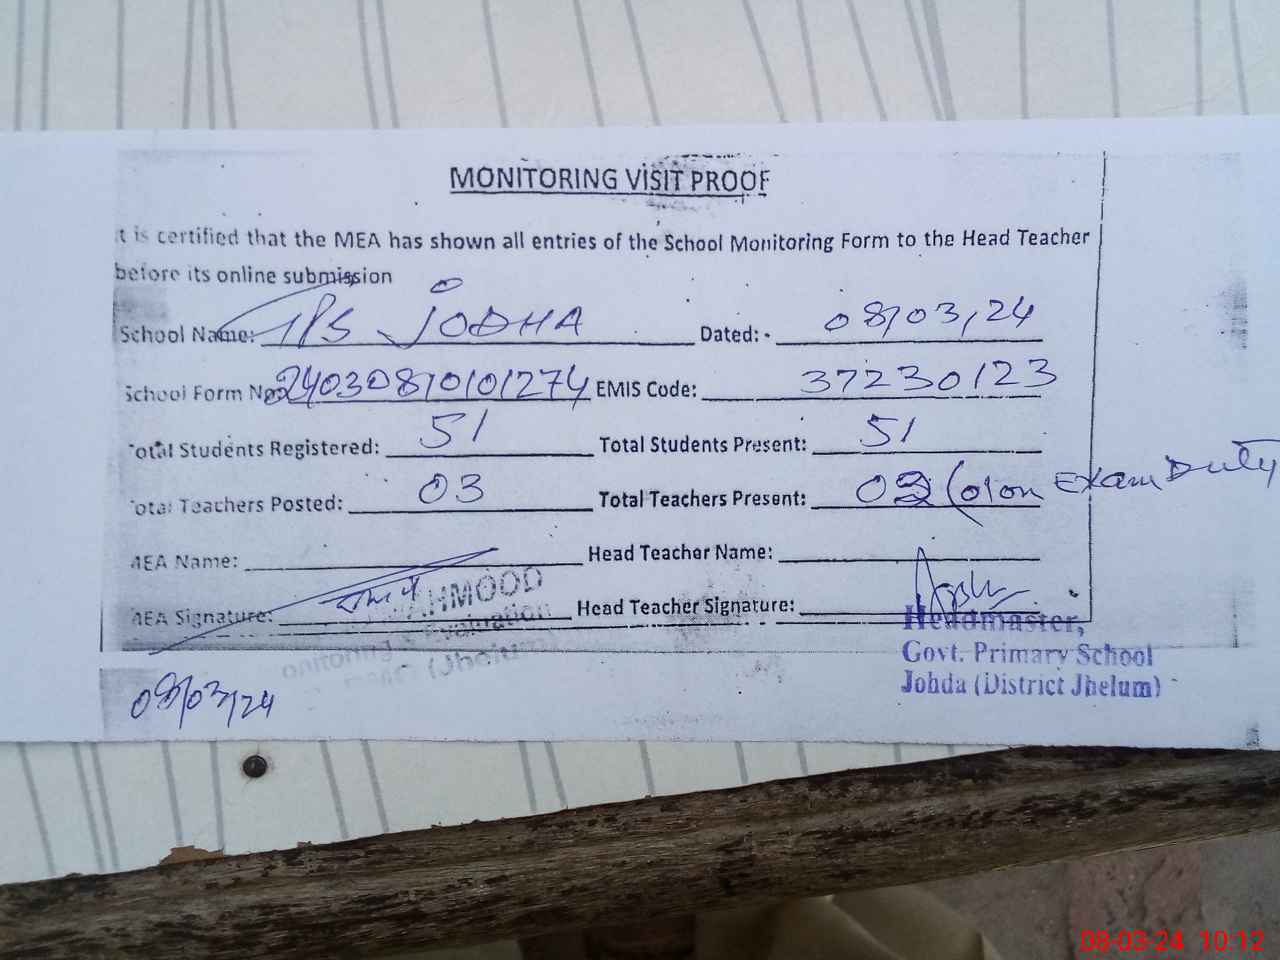 MONITORING VISIT PROOF
It is certified that the MEA has shown all entries of the School Monitoring Form to the Head Teacher
before its online submission
School Name: GPS JODHA Dated: - 08/03/24
School Form No: 24030810101274 EMIS Code: 37230123
Total Students Registered: 51 Total Students Present: 51
Total Teachers Posted: 03 Total Teachers Present: 02 (01 on Exam Duty
MEA Name: Head Teacher Name:
MEA Signature: MAHMOOD Head Teacher Signature:
Monitoring & Evaluation
(Jhelum)
Headmaster,
Govt. Primary School
Johda (District Jhelum)
08/03/24
08-03-24 10:12